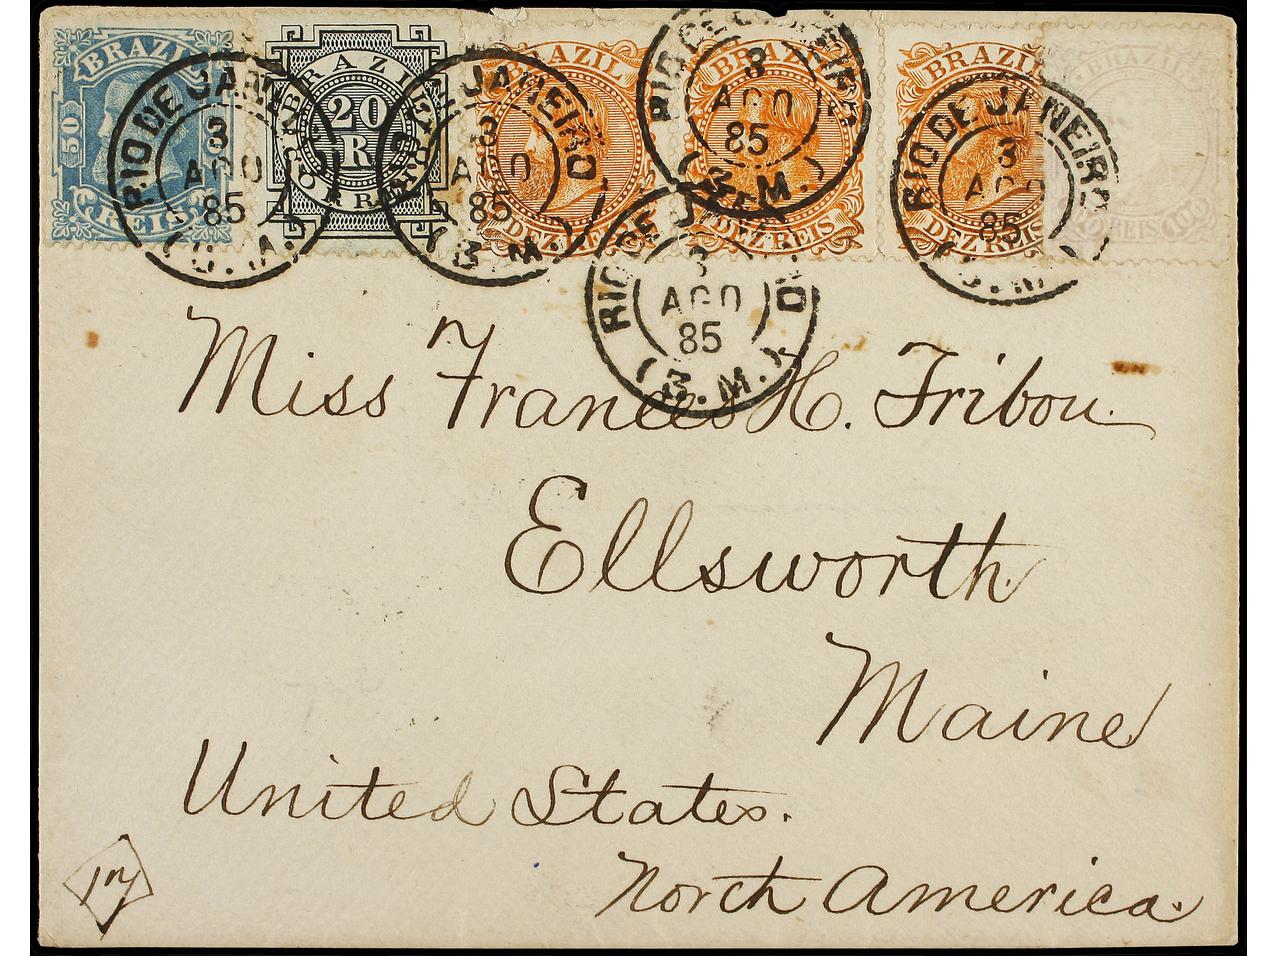 BRAZIL
50
REIS
BRAZIL
20
R
CORREIO
BRAZIL
DEZ REIS
BRAZIL
DEZ REIS
BRAZIL
DEZ REIS
BRAZIL
REIS
RIO DE JANEIRO
3
AGO
85
RIO DE JANEIRO
3
AGO
85
(3.M.)
RIO DE JANEIRO
3
AGO
85
(3.M.)
RIO DE JANEIRO
3
AGO
85
(3.M.)
RIO DE JANEIRO
3
AGO
85
Miss Frances H. Tribou.
Ellsworth
Maine
United States.
North America.